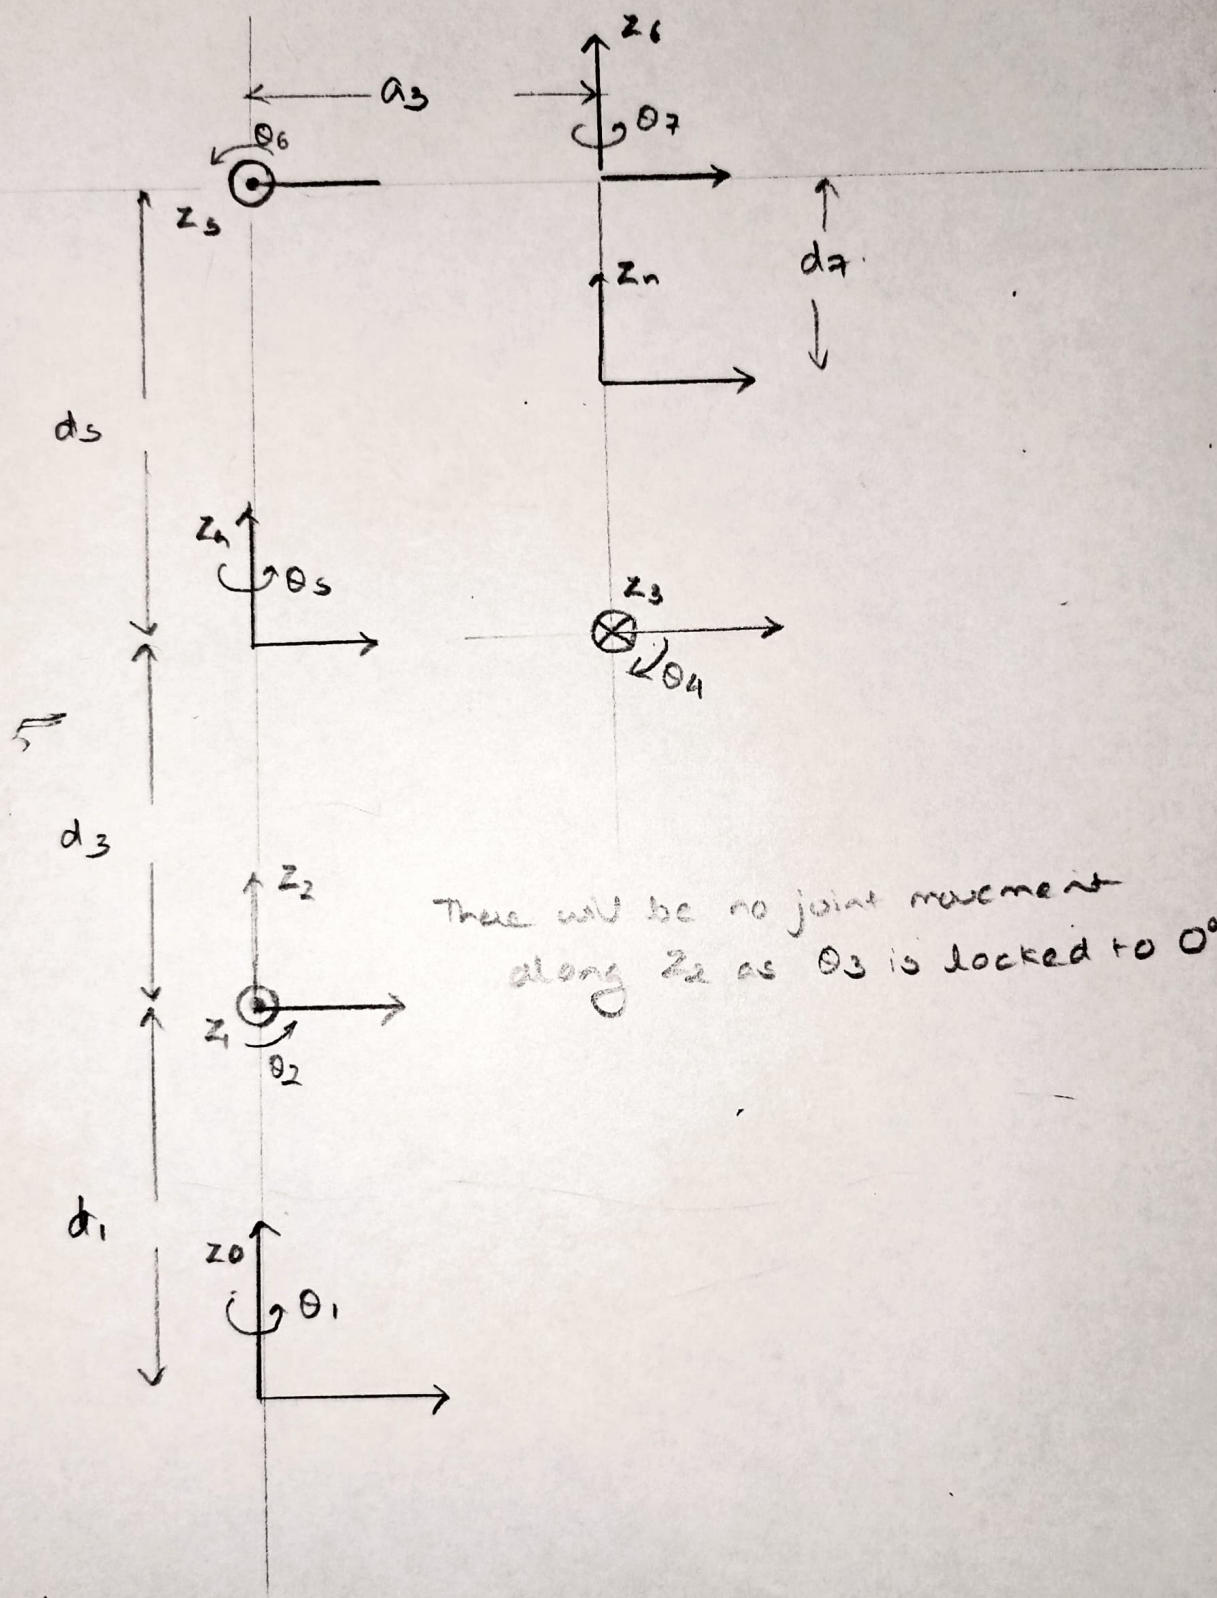 z6
a3
θ7
θ6
z5
d7
zn
d5
z4
θ5
z3
θ4
d3
z2
There will be no joint movement
along z2 as θ3 is locked to 0°
z1
θ2
d1
z0
θ1